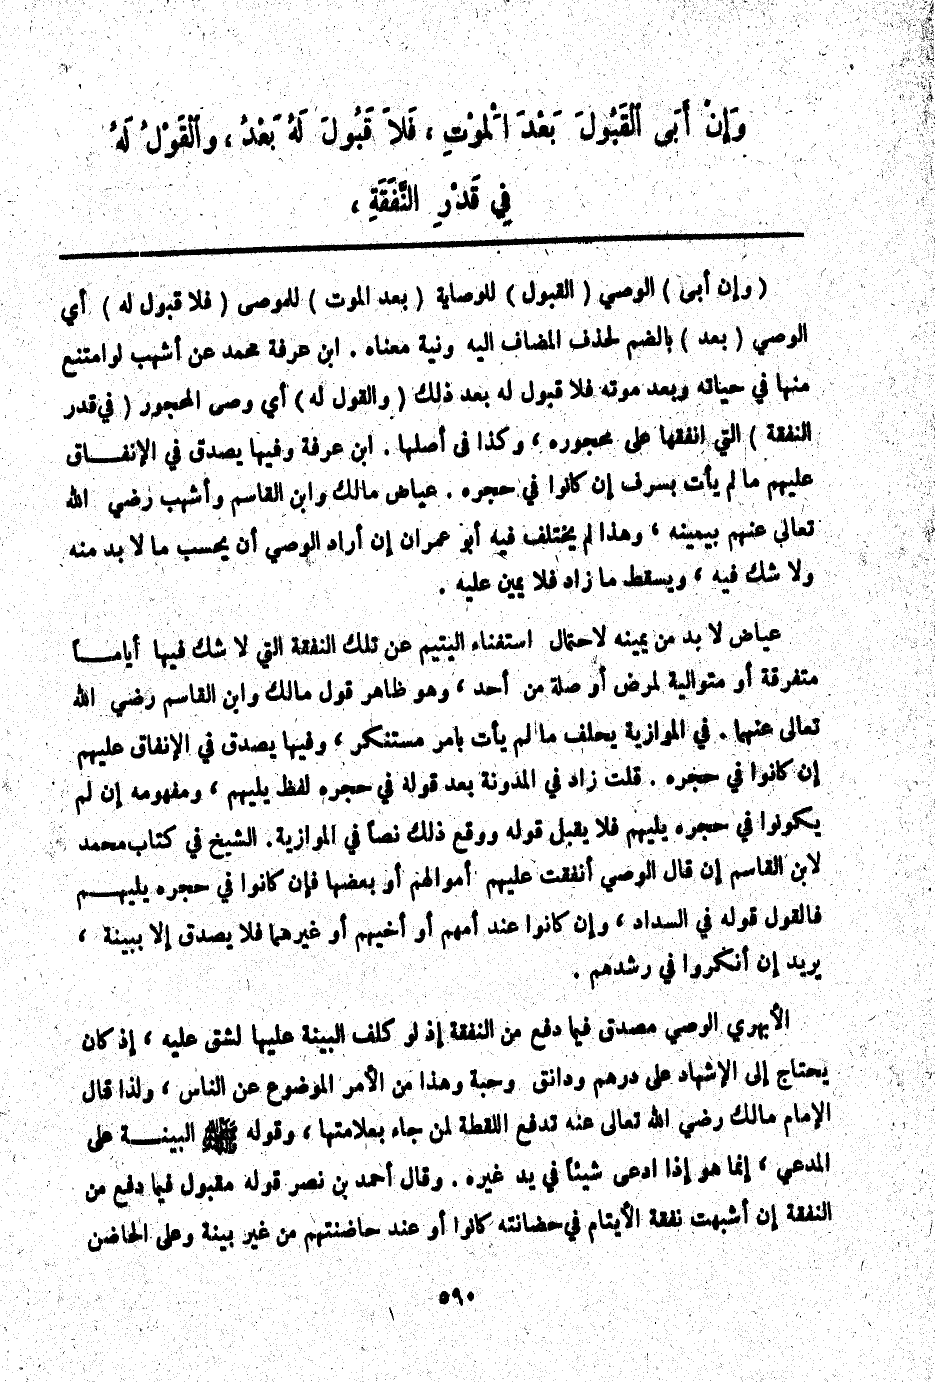 وَإِنْ أَبَى ٱلْقَبُولَ بَعْدَ ٱلْمَوْتِ ، فَلاَ قَبُولَ لَهُ بَعْدُ ، وٱلْقَوْلُ لَهُ
فِي قَدْرِ النَّفَقَةِ ،
( وإن أبى ) الوصي ( القبول ) للوصاية ( بعد الموت ) للموصى ( فلا قبول له ) أي
الوصي ( بعد ) بالضم لحذف المضاف اليه ونية معناه . ابن عرفة محمد عن أشهب لوامتنع
منها في حياته وبعد موته فلا قبول له بعد ذلك ( والقول له ) أي وصى المحجور ( في قدر
النفقة ) التي انفقها على محجوره ، وكذا فى أصلها . ابن عرفة وفيها يصدق في الإنفـــاق
عليهم ما لم يأت بسرف إن كانوا في حجره . عياض مالك وابن القاسم وأشهب رضي الله
تعالى عنهم بيمينه ، وهذا لم يختلف فيه أبو عمران إن أراد الوصي أن يحسب ما لا بد منه
ولا شك فيه ، ويسقط ما زاد فلا يمين عليه .
عياض لا بد من يمينه لاحتمال استغناء اليتيم عن تلك النفقة التي لا شك فيها أيامـــاً
متفرقة أو متوالية لمرض أو صلة من أحد ، وهو ظاهر قول مالك وابن القاسم رضي الله
تعالى عنهما . في الموازية يحلف ما لم يأت بامر مستنكر ، وفيها يصدق في الإنفاق عليهم
إن كانوا في حجره . قلت زاد في المدونة بعد قوله في حجره لفظ يليهم ، ومفهومه إن لم
يكونوا في حجره يليهم فلا يقبل قوله ووقع ذلك نصاً في الموازية . الشيخ في كتاب محمد
لابن القاسم إن قال الوصي أنفقت عليهم أموالهم أو بعضها فإن كانوا في حجره يليهـــم
فالقول قوله في السداد ، وإن كانوا عند أمهم أو أخيهم أو غيرهما فلا يصدق إلا ببينة ،
يريد إن أنكروا في رشدهم .
الأبهري الوصي مصدق فيما دفع من النفقة إذ لو كلف البينة عليها لشق عليه ، إذ كان
يحتاج إلى الإشهاد على درهم ودانق وحبة وهذا من الأمر الموضوع عن الناس ، ولذا قال
الإمام مالك رضي الله تعالى عنه تدفع اللقطة لمن جاء بعلامتها ، وقوله ﷺ البينـــة على
المدعي ، إنما هو إذا ادعى شيئاً في يد غيره . وقال أحمد بن نصر قوله مقبول فيما دفع من
النفقة إن أشبهت نفقة الأيتام في حضانته كانوا أو عند حاضنتهم من غير بينة وعلى الحاضن
٥٩٠